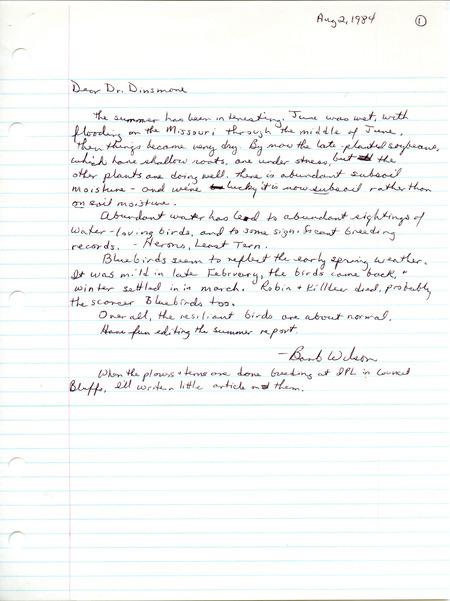 Aug 2, 1984 1
Dear Dr. Dinsmore
The summer has been interesting. June was wet, with
flooding on the Missouri through the middle of June.
Then things became very dry. By now the late-planted soybeans,
which have shallow roots, are under stress, but the
other plants are doing well. There is abundant subsoil
moisture - and we're lucky it is now subsoil rather than
on soil moisture.
Abundant water has led to abundant sightings of
water-loving birds, and to some significant breeding
records. - Herons, Least Tern.
Bluebirds seem to reflect the early spring weather.
It was mild in late February, the birds came back,
winter settled in in march. Robin + Killdeer died, probably
the scarcer Bluebirds too.
Over all, the resiliant birds are about normal.
Have fun editing the summer report.
- Barb Wilson
When the plovers + terns are done breeding at IPL in Council
Bluffs, I'll write a little article on them.